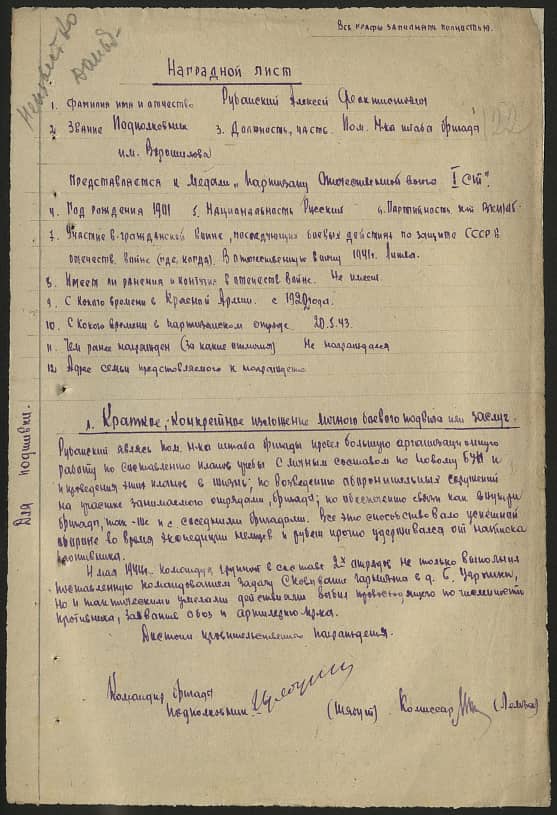 Все графы заполнять полностью.
Наградной лист
1. Фамилия имя и отчество Рубанский Алексей Феактистович
2. Звание Подполковник 3. Должность, часть. Пом. Н-ка штаба бригады
122
им. Ворошилова
Представляется к медали „Партизану Отечественной войны I ст".
4. Год рождения 1901 5. Национальность Русский 6. Партийность
7. Участие в гражданской войне, последующих боевых действиях по защите СССР в
отечеств. войне (где, когда). В отечественную войну 1941г. Литва.
8. Имеет ли ранения и контузии в отечеств. войне. Не имеет.
9. С какого времени в Красной Армии. с 1920 года.
10. С какого времени в партизанском отряде. 20.5.43.
11. Чем ранее награжден (за какие отличия) Не награждался
12. Адрес семьи представляемого к награждению
Для подшивки.
1. Краткое, конкретное изложение личного боевого подвига или заслуг.
Рубанский являясь Пом. Н-ка штаба бригады провел большую организационную
работу по составлению планов учебы с личным составом по новому БУП и
проведения этих планов в жизнь; по возведению оборонительных сооружений
на участке занимаемого отрядами, бригады; по обеспечению связи как внутри
бригады, так-же и с соседними бригадами. Все это способствовало успешной
обороне во время экспедиции немцев и рубеж прочно удерживался от натиска
противника.
Н мая 1944г. командуя группой в составе 2х отрядов не только выполнил
поставленную командованием задачу сковывание гарнизона в д.
но и тактически умелыми действиями выбил превосходящего по численности
противника, захватив обоз и
Достоин правительственного награждения.
Командир бригады
Подполковник (Тябут) Комиссар